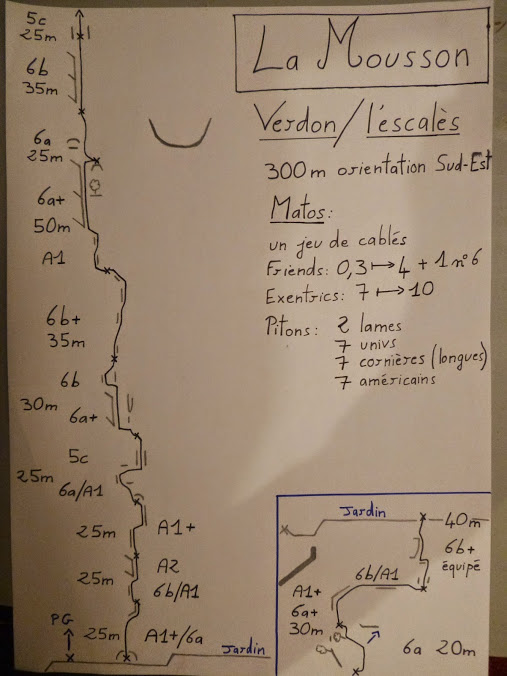 La Mousson
Verdon/l'escalès
300m orientation Sud-Est
Matos:
un jeu de cablés
Friends: 0,3 ↦ 4 + 1 n°6
Exentrics: 7 ↦ 10
Pitons: 2 lames
7 univs
7 cornières (longues)
7 américains
5c
25m
6b
35m
6a
25m
6a+
50m
A1
6b+
35m
6b
30m
6a+
5c
25m
6a/A1
25m
A1+
25m
A2
6b/A1
PG
25m
A1+/6a
Jardin
Jardin
40m
6b+
équipé
6b/A1
A1+
6a+
30m
6a 20m